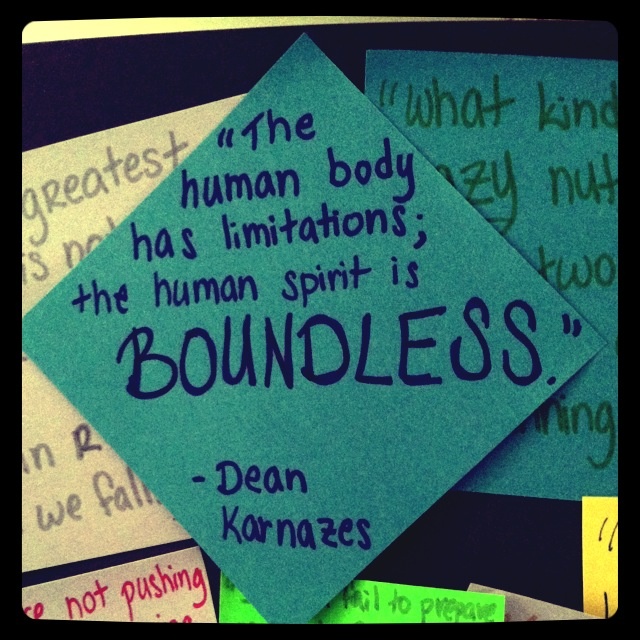 "The
human body
has limitations;
the human spirit is
BOUNDLESS."
- Dean
Karnazes
greatest
is no
in R
we fall
"what kind
zy nut
two
ning
not pushing
ail to prepare